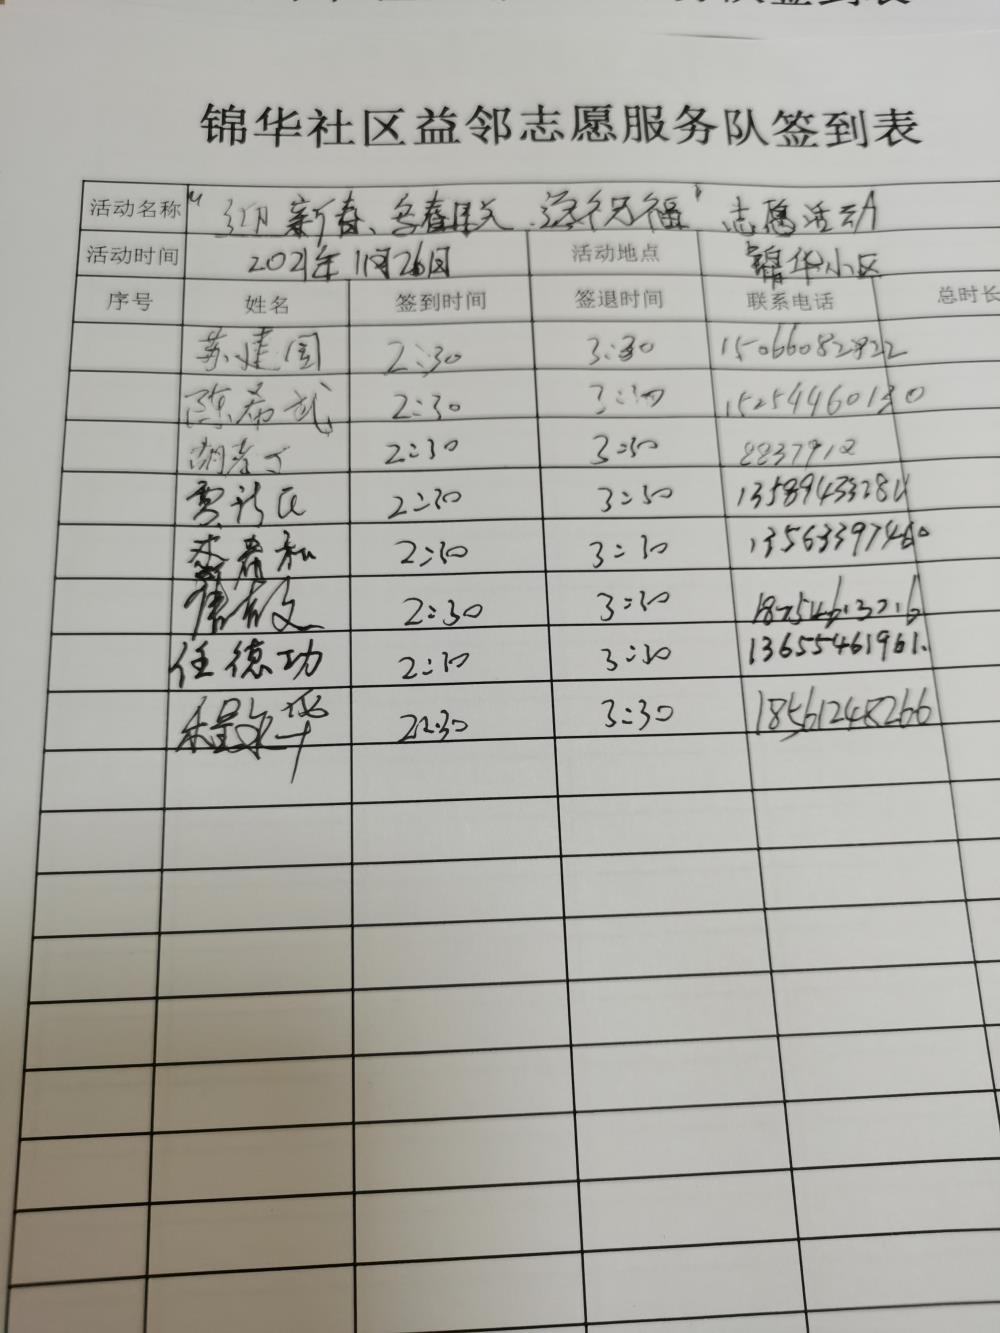 锦华社区益邻志愿服务队签到表
活动名称 "迎新春、写春联、送祝福" 志愿活动
活动时间 2021年1月26日 活动地点 锦华小区
序号 姓名 签到时间 签退时间 联系电话 总时长
苏建国 2:30 3:30 15066082922
陈希武 2:30 3:30 15254460130
胡孝丁 2:30 3:30 8837912
贾新民 2:30 3:30
2:30 3:30 13563397460
2:30 3:30
任德功 2:30 3:30 13655461961.
程永华 2:30 3:30 18561248266